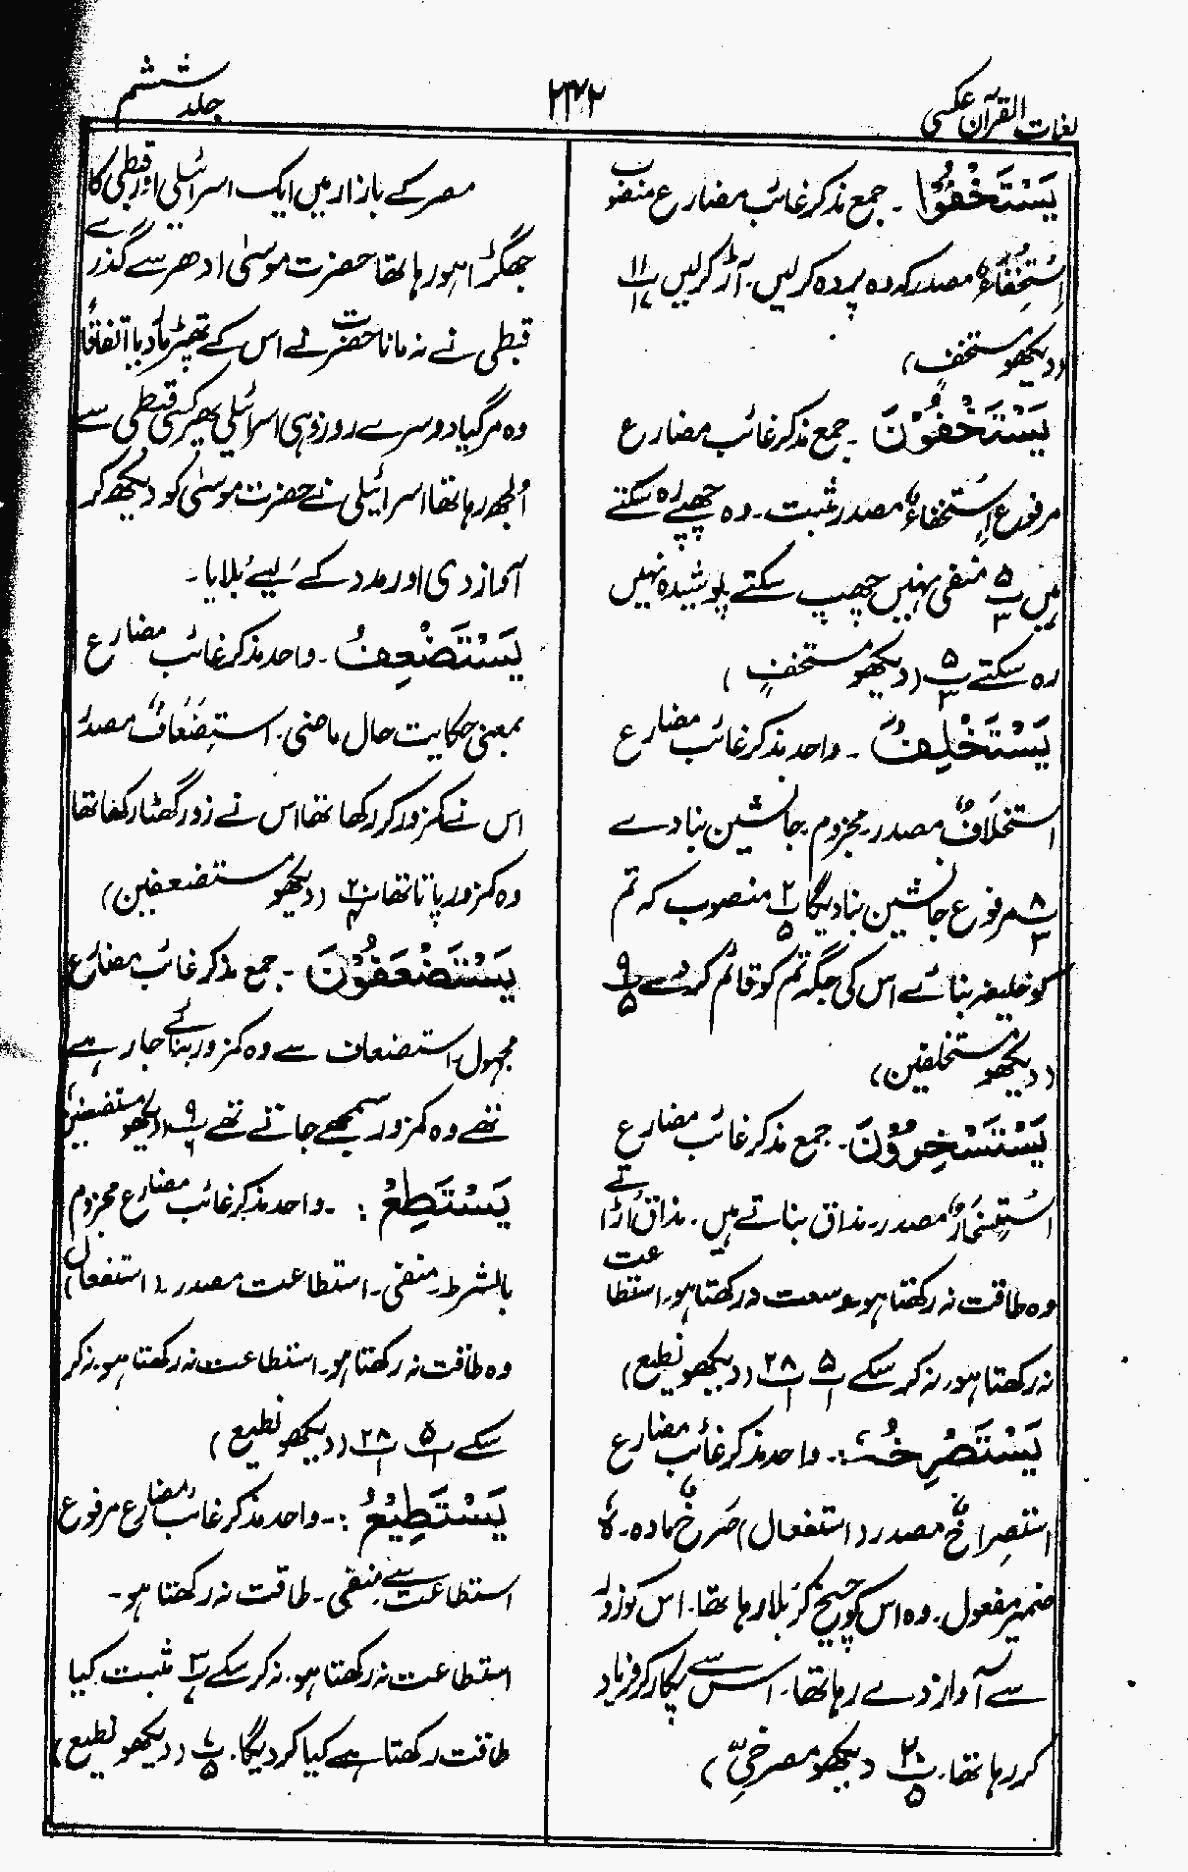 لغات القرآن عکسی
۲۴۲
جلد ششم
یَسْتَخْفُوْا ۔ جمع مذکر غائب مضارع منصوب
اِسْتِخْفَاءٌ مصدر کہ وہ پردہ کرلیں۔ آڑ کرلیں پ ۱۱
(دیکھو مستخف)
یَسْتَخْفُوْنَ ۔ جمع مذکر غائب مضارع
مرفوع اِسْتِخْفَاءٌ مصدر مثبت۔ وہ چھپے رہ سکتے
ہیں پ ۵/۳ منفی نہیں چھپ سکتے پوشیدہ نہیں
رہ سکتے پ ۵/۳ (دیکھو مستخفٍ)
یَسْتَخْلِفُ ۔ واحد مذکر غائب مضارع
استخلافٌ مصدر۔ مجزوم۔ جانشین بنا دے
پ ۸/۳ مرفوع جانشین بنا دیگا پ ۲/۵ منصوب کہ تم
کو خلیفہ بنائے اس کی جگہ تم کو قائم کردے پ ۹/۵
(دیکھو مستخلفین)
یَسْتَسْخِرُوْنَ ۔ جمع مذکر غائب مضارع
اِسْتِسْخَارٌ مصدر۔ مذاق بناتے ہیں۔ مذاق اُڑاتے
وہ طاقت نہ رکھتا ہو وسعت نہ رکھتا ہو۔ استطاعت
نہ رکھتا ہو، نہ کر سکے پ ۵/۱ پ ۲۸/۱ (دیکھو نطیع)
یَسْتَصْرِخُ :۔ واحد مذکر غائب مضارع
استصراخٌ مصدر (استفعال) صَرخٌ مادہ۔ ہٗ
ضمیر مفعول۔ وہ اس کو چیخ کر بلا رہا تھا۔ اس کو زور
سے آواز دے رہا تھا۔ اس سے پکار کر فریاد
کر رہا تھا۔ پ ۲۰/۵ دیکھو مصرخیّ)
مصر کے بازار میں ایک اسرائیلی اور قبطی کا
جھگڑا ہو رہا تھا حضرت موسیٰ ادھر سے گذرے
قبطی نے نہ مانا حضرت نے اس کے تھپڑ مار دیا اتفاقاً
وہ مر گیا دوسرے روز وہی اسرائیلی پھر کسی قبطی سے
اُلجھ رہا تھا اسرائیلی نے حضرت موسیٰ کو دیکھ کر
آواز دی اور مدد کے لیے بلایا۔
یَسْتَضْعِفُ ۔ واحد مذکر غائب مضارع
بمعنی حکایت حال ماضی۔ استضعافٌ مصدر
اس نے کمزور کر رکھا تھا اس نے زور گھٹا رکھا تھا
وہ کمزور پاتا تھا پ ۲۰/۴ (دیکھو مستضعفین)
یُسْتَضْعَفُوْنَ ۔ جمع مذکر غائب مضارع
مجہول۔ استضعاف سے وہ کمزور بنائے جا رہے
تھے وہ کمزور سمجھے جاتے تھے پ ۹/۶ (دیکھو مستضعفین)
یَسْتَطِعْ :۔ واحد مذکر غائب مضارع مجزوم
بالشرط۔ منفی۔ استطاعت مصدر۔ (استفعال)
وہ طاقت نہ رکھتا ہو۔ استطاعت نہ رکھتا ہو۔ نہ کر
سکے پ ۵/۱ پ ۲۸/۱ (دیکھو نطیع)
یَسْتَطِیْعُ :۔ واحد مذکر غائب مضارع مرفوع
استطاعت سے منفی۔ طاقت نہ رکھتا ہو۔
استطاعت نہ رکھتا ہو۔ نہ کر سکے پ ۳ مثبت کیا
طاقت رکھتا ہے کیا کر دیگا۔ پ ۷/۵ (دیکھو نطیع)